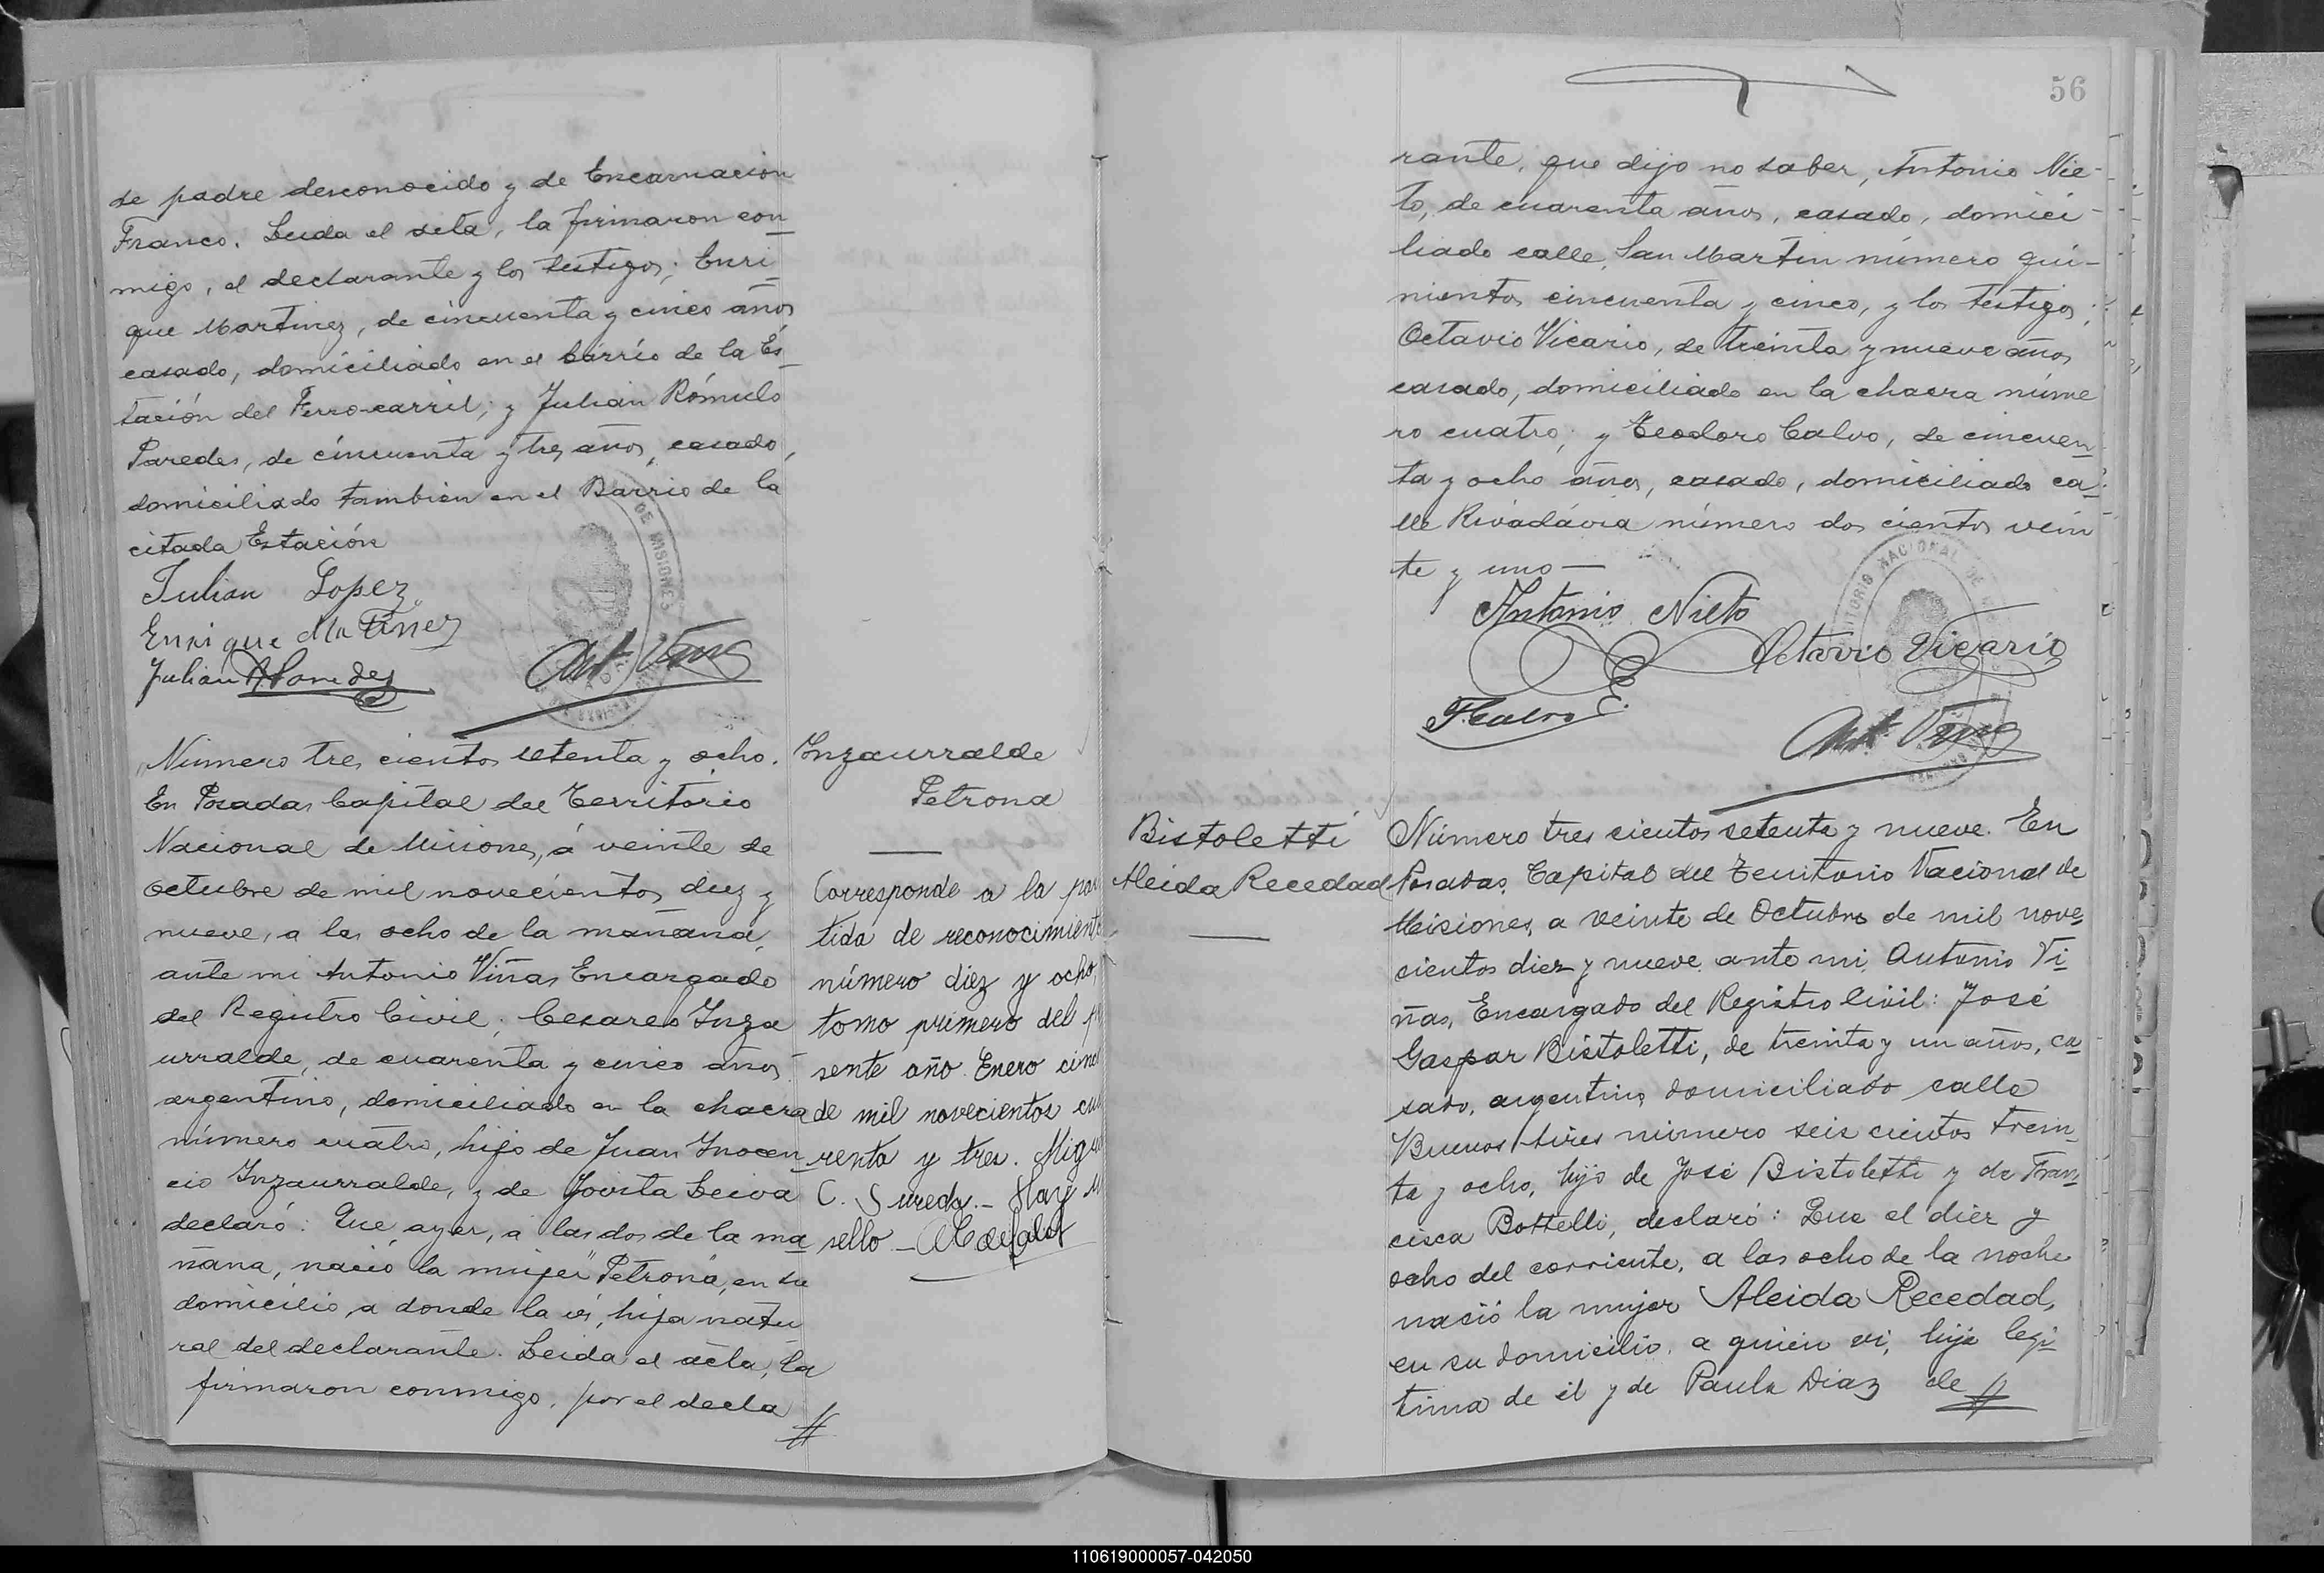 de padre desconocido y de Encarnación
Franco. Leida el acta, la firmaron con
migo, el declarante y los testigos; Enri
que Martinez, de cincuenta y cinco años
casado, domiciliado en el barrio de la Es
tación del Ferro-carril; y Julián Rómulo
Paredes, de cincuenta y tres años, casado,
domiciliado tambien en el Barrio de la
citada Estación
Julian Lopez
Enrique Martinez
Julian R Paredes
Ant Viñas
DE MISIONES
Número tres cientos setenta y ocho.
En Posadas Capital del Territorio
Nacional de Misiones, á veinte de
Octubre de mil novecientos diez y
nueve, a las ocho de la mañana,
ante mi Antonio Viñas Encargado
del Registro Civil; Cesareo Inza
urralde, de cuarenta y cinco años
argentino, domiciliado en la chacra
número cuatro, hijo de Juan Inocen
cio Inzaurralde, y de Jovita Leiva
declaró: Que, ayer, a las dos de la ma
ñana, nació la mujer "Petrona", en su
domicilio, a donde la ví, hija natu
ral del declarante. Leida el acta, la
firmaron conmigo, por el decla
Inzaurralde
Petrona
Corresponde a la par
tida de reconocimiento
número diez y ocho,
tomo primero del
sente año. Enero cinco
de mil novecientos cua
renta y tres. Miguel
C. Sureda.- Hay un
sello -
56
rante, que dijo no saber, Antonio Nie-
to, de cuarenta años, casado, domici-
liado calle San Martin número qui-
nientos cincuenta y cinco, y los testigos;
Octavio Vicario, de treinta y nueve años,
casado, domiciliado en la chacra núme
ro cuatro; y Teodoro Calvo, de cincuen
ta y ocho años, casado, domiciliado ca-
lle Rivadávia número dos cientos vein
te y uno —
Antonio Nieto
Octavio Vicario
T. Calvo
Ant Viñas
TERRITORIO NACIONAL DE
Bistoletti
Aleida Recedad
Número tres cientos setenta y nueve. En
Posadas, Capital del Territorio Nacional de
Misiones, a veinte de Octubre de mil nove-
cientos diez y nueve, ante mi, Antonio Vi-
ñas, Encargado del Registro Civil: José
Gaspar Bistoletti, de treinta y un años, ca
sado, argentino, domiciliado calle
Buenos Aires número seis cientos trein-
ta y ocho, hijo de José Bistoletti y de Fran
cisca Bottelli, declaró: Que el diez y
ocho del corriente, a las ocho de la noche
nació la mujer Aleida Recedad,
en su domicilio, a quien vi, hija legí-
tima de él y de Paula Diaz de
110619000057-042050